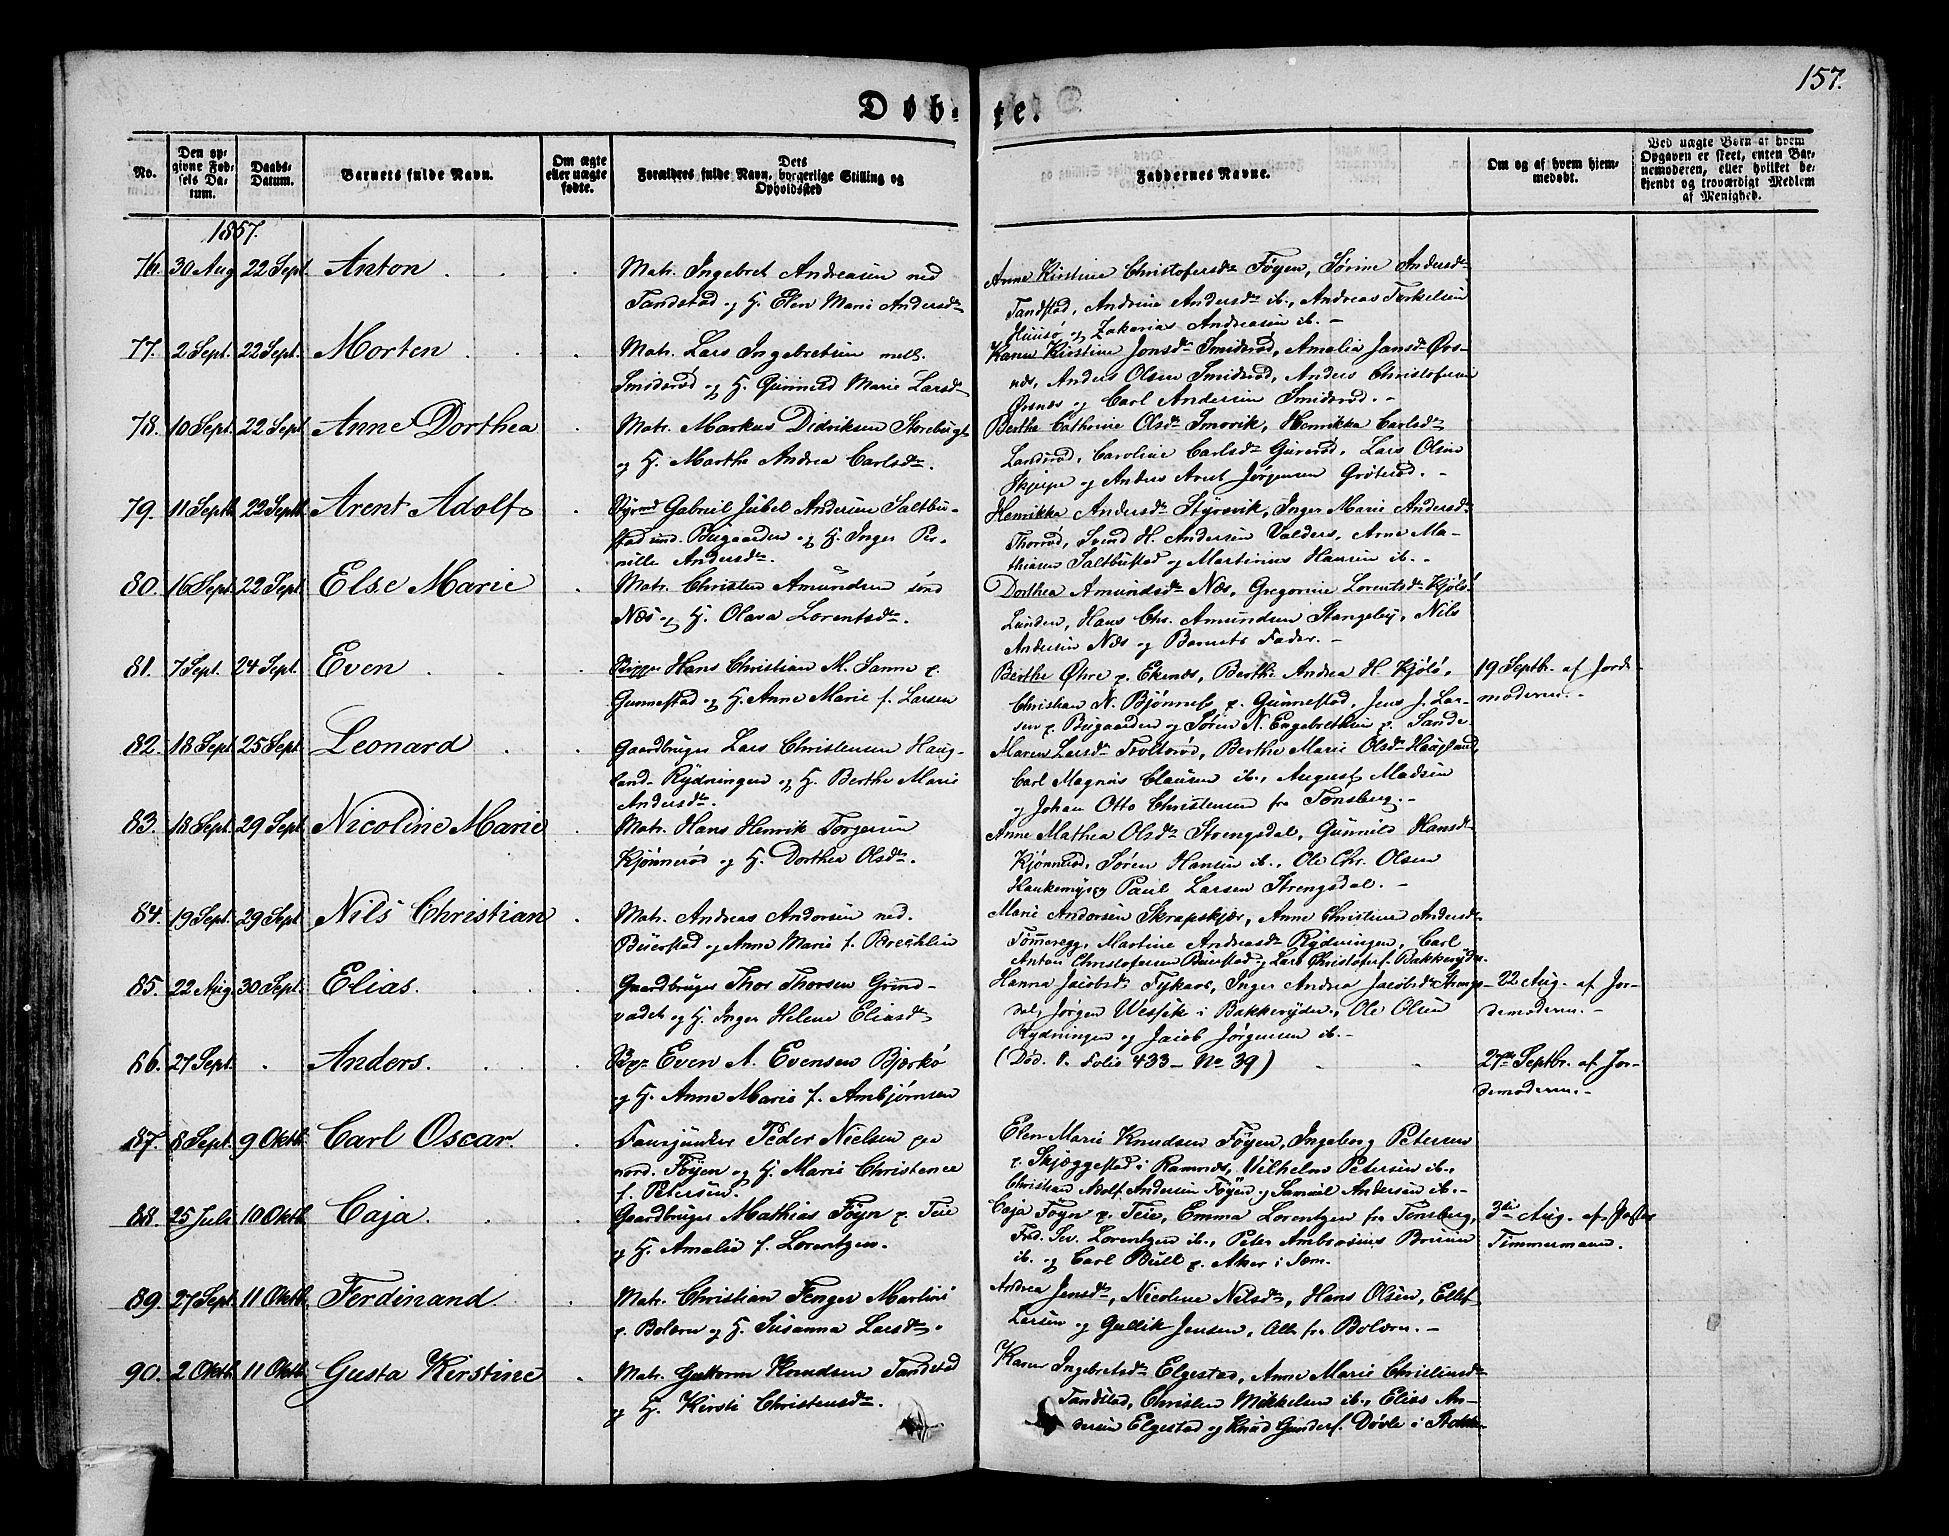 157.
Døbte.
No.
Den opgivne Fødsels Datum.
Daabs-Datum.
Barnets fulde Navn.
Om ægte eller uægte fødte.
Forældres fulde Navn, borgerlige Stilling og Dets Opholdssted
Faddernes Navne.
Om og af hvem hjemmedøbt.
Ved uægte Børn af hvem Opgaven er skeet, enten Barnemoderen, eller hvilket bekjendt og troværdigt Medlem af Menighed.
1857.
76. 30 Aug 22 Sept. Anton
Matr. Ingebret Andreasen ned
Tandstad og H. Elen Marie Andersdtr
Anne Kirstine Christofersdtr Føyen, Sørine Andersdtr
Tandstad, Andrine Andersdtr ib., Andreas Torkelsen
Huusø og Zakarias Andreasen ib. –
77. 2 Sept. 22 Sept. Morten
Matr. Lars Ingebretsen mell.
Smiderød og H. Gunnild Marie Larsdtr
Karen Kirstine Jonsdtr Smiderød, Amalia Jansdtr Ørs-
næs, Anders Olsen Smiderød, Anders Christofersen
Ørsnæs og Carl Andersen Smiderød. –
78. 10 Sept. 22 Sept. Anne Dorthea
Matr. Markus Didriksen Storeberg
og H. Marthe Andrea Carlsdtr.
Berthe Cathrine Olsdtr Smørvik, Henrikka Carlsdtr
Landsrød, Caroline Carlsdtr Gurerød, Lars Olsen
Skjerpe og Anders Arnt Jørgensen Grøterød. –
79. 11 Septb. 22 Septb. Arent Adolf
Gabriel Jubel Andersen Saltbu-
stad und. Bugaarden og H. Inger Per-
nille Andersdtr.
Henrikka Andersdtr Styrsvik, Inger Marie Andersdtr
Thorrød, Svend H. Andersen Valders, Arne Ma-
thiasen Saltbustad og Martinius Hansen ib. –
80. 16 Sept. 22 Sept. Else Marie
Matr. Christen Amundsen sønd
Næs og H. Olava Lorentsdtr.
Dorthea Amundsdtr Næs, Gregorine Lorentsdtr Kjøl-
Lunden, Hans Chr. Amundsen Stangeby, Nils
Andersen Næs og Barnets Fader. –
81. 7 Sept. 24 Sept. Even
Hans Christian M. Sanne p.
Gunnestad og H. Anne Marie f. Larsen
Berthe Øhre p. Ekenæs, Berthe Andrea H. Kjølø,
Christian N. Bjønnes p. Gunnestad, Jens J. Lar-
sen p. Bugaarden og Søren N. Engebrethsen p. Sande.
19 Septb. af Jorde-
moderen. –
82. 18 Sept. 25 Sept. Leonard
Gaardbruger Lars Christensen Haug-
land Rydningen og H. Berthe Marie
Andersdtr.
Maren Larsdtr Troltsrød, Berthe Marie Olsdtr Haugland,
Carl Magnus Clausen ib., August Madsen
og Johan Otto Christensen fra Tønsberg. –
83. 18 Sept. 29 Sept. Nicoline Marie
Matr. Hans Henrik Torgersen
Kjønnerød og H. Dorthea Olsdtr.
Anne Mathea Olsdtr Strengsdal, Gunnild Hansdtr
Kjønnerød, Søren Hansen ib., Ole Chr. Olsen
Haukemyr og Paul Larsen Strengsdal. –
84. 19 Sept. 29 Sept. Nils Christian
Matr. Andreas Andersen ned.
Buerstad og Anne Marie f. Brechlin
Marie Andersen Skrapskjær, Anne Christine Andersdtr
Tømmeregg, Martine Andreasdtr Rydningen, Carl
Anton Christofersen Buerstad og Lars Christofers. Bakkeryden.
85. 22 Aug. 30 Sept. Elias.
Gaardbruger Thor Thorsen Grind-
vadet og H. Inger Helene Eliasdtr
Hanna Jacobsdtr Tykaas, Inger Andrea Jacobsdtr Strengs-
dal, Jørgen Westfik i Bakkeryden, Ole Olsen
Rydningen og Jacob Jørgensen ib. –
22 Aug. af Jor-
demoderen. –
86. 27 Sept. Anders.
Even A. Evensen Bjerkø
og H. Anne Marie f. Ambjørnsen
(Død. S. Folio 433 – No 39)
27de Septbr. af Jor-
demoderen. –
87. 8 Sept. 9 Oktb. Carl Oscar.
Fanejunker Peder Nielsen paa
nord. Føyen og H. Marie Christence
f. Petersen.
Elen Marie Knudsen Føyen, Ingeborg Petersen
p. Skjæggestad i Ramnæs, Vilhelm Petersen ib.,
Christian Adolf Andersen Føyen og Samuel Andersen ib. –
88. 25 Juli 10 Oktb. Caja.
Gaardbruger Mathias Føyn p. Teie
og H. Amalie f. Lorentzen.
Caja Føyn p. Teie, Emma Lorentzen fra Tønsberg,
Fred. Sv. Lorentzen ib., Peter Ambrosius Bruun
ib. og Carl Bull p. Aker i Sem.
3die Aug. af Pastor
Timmermann.
89. 27 Sept. 11 Oktb. Ferdinand.
Matr. Christian Fenger Martini
p. Bolærn og H. Susanna Larsdtr.
Andrea Jensdtr, Nicoline Nilsdtr, Hans Olsen, Ellef
Larsen og Gullik Jensen, Alle fra Bolærn. –
90. 2 Oktb. 11 Oktb. Gusta Kirstine
Matr. Guttorm Knudsen Tandstad
og H. Kirsti Christensdtr.
Karen Ingebretsdtr Elgestad, Anne Marie Christensdtr
Tandstad, Christen Mikkelsen ib., Elias An-
dersen Elgestad og Knud Gunders. Døvle i Stokke